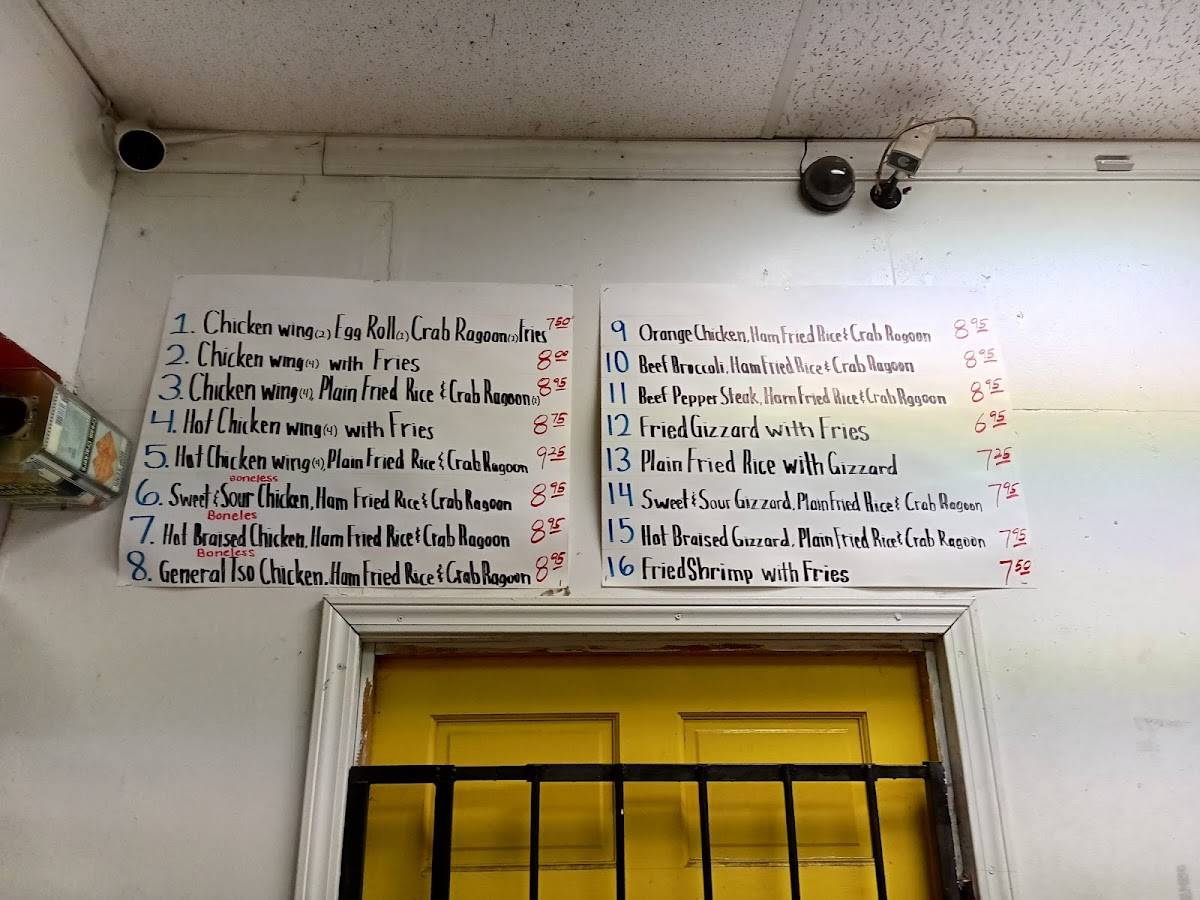 1. Chicken wing(2) Egg Roll(2) Crab Ragoon(2) Fries 7.50
2. Chicken wing(4) with Fries 8.00
3. Chicken wing(4), Plain Fried Rice & Crab Ragoon(2) 8.95
4. Hot Chicken wing(4) with Fries 8.75
5. Hot Chicken wing(4), Plain Fried Rice & Crab Ragoon 9.25
boneless
6. Sweet & Sour Chicken, Ham Fried Rice & Crab Ragoon 8.95
Boneles
7. Hot Braised Chicken, Ham Fried Rice & Crab Ragoon 8.95
Boneless
8. General Tso Chicken, Ham Fried Rice & Crab Ragoon 8.95
9 Orange Chicken, Ham Fried Rice & Crab Ragoon 8.95
10 Beef Broccoli, Ham Fried Rice & Crab Ragoon 8.95
11 Beef Pepper Steak, Ham Fried Rice & Crab Ragoon 8.95
12 Fried Gizzard with Fries 6.95
13 Plain Fried Rice with Gizzard 7.25
14 Sweet & Sour Gizzard, Plain Fried Rice & Crab Ragoon 7.95
15 Hot Braised Gizzard, Plain Fried Rice & Crab Ragoon 7.95
16 Fried Shrimp with Fries 7.50